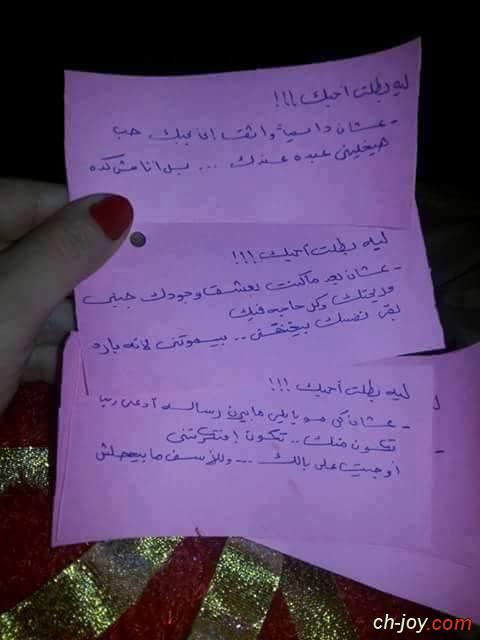 ليه بطلت احبك !!!
- عشان دايماً واثق اني بحبك حب
هيخليني عبده عندك ... بس انا مش كده
ليه بطلت أحبك !!!
- عشان بعد ماكنت بعشق وجودك جنبي
وريحتك وكل حاجه فيك
بقى نفسك بيخنقني .. بيموتني لانه بارد
ليه بطلت أحبك !!!
- عشان كل موبايلي مايرن رساله أدعي ربنا
تكون منك .. تكون إفتكرتني
أو جيت على بالك ... وللأسف مابيحصلش
ch-joy.com